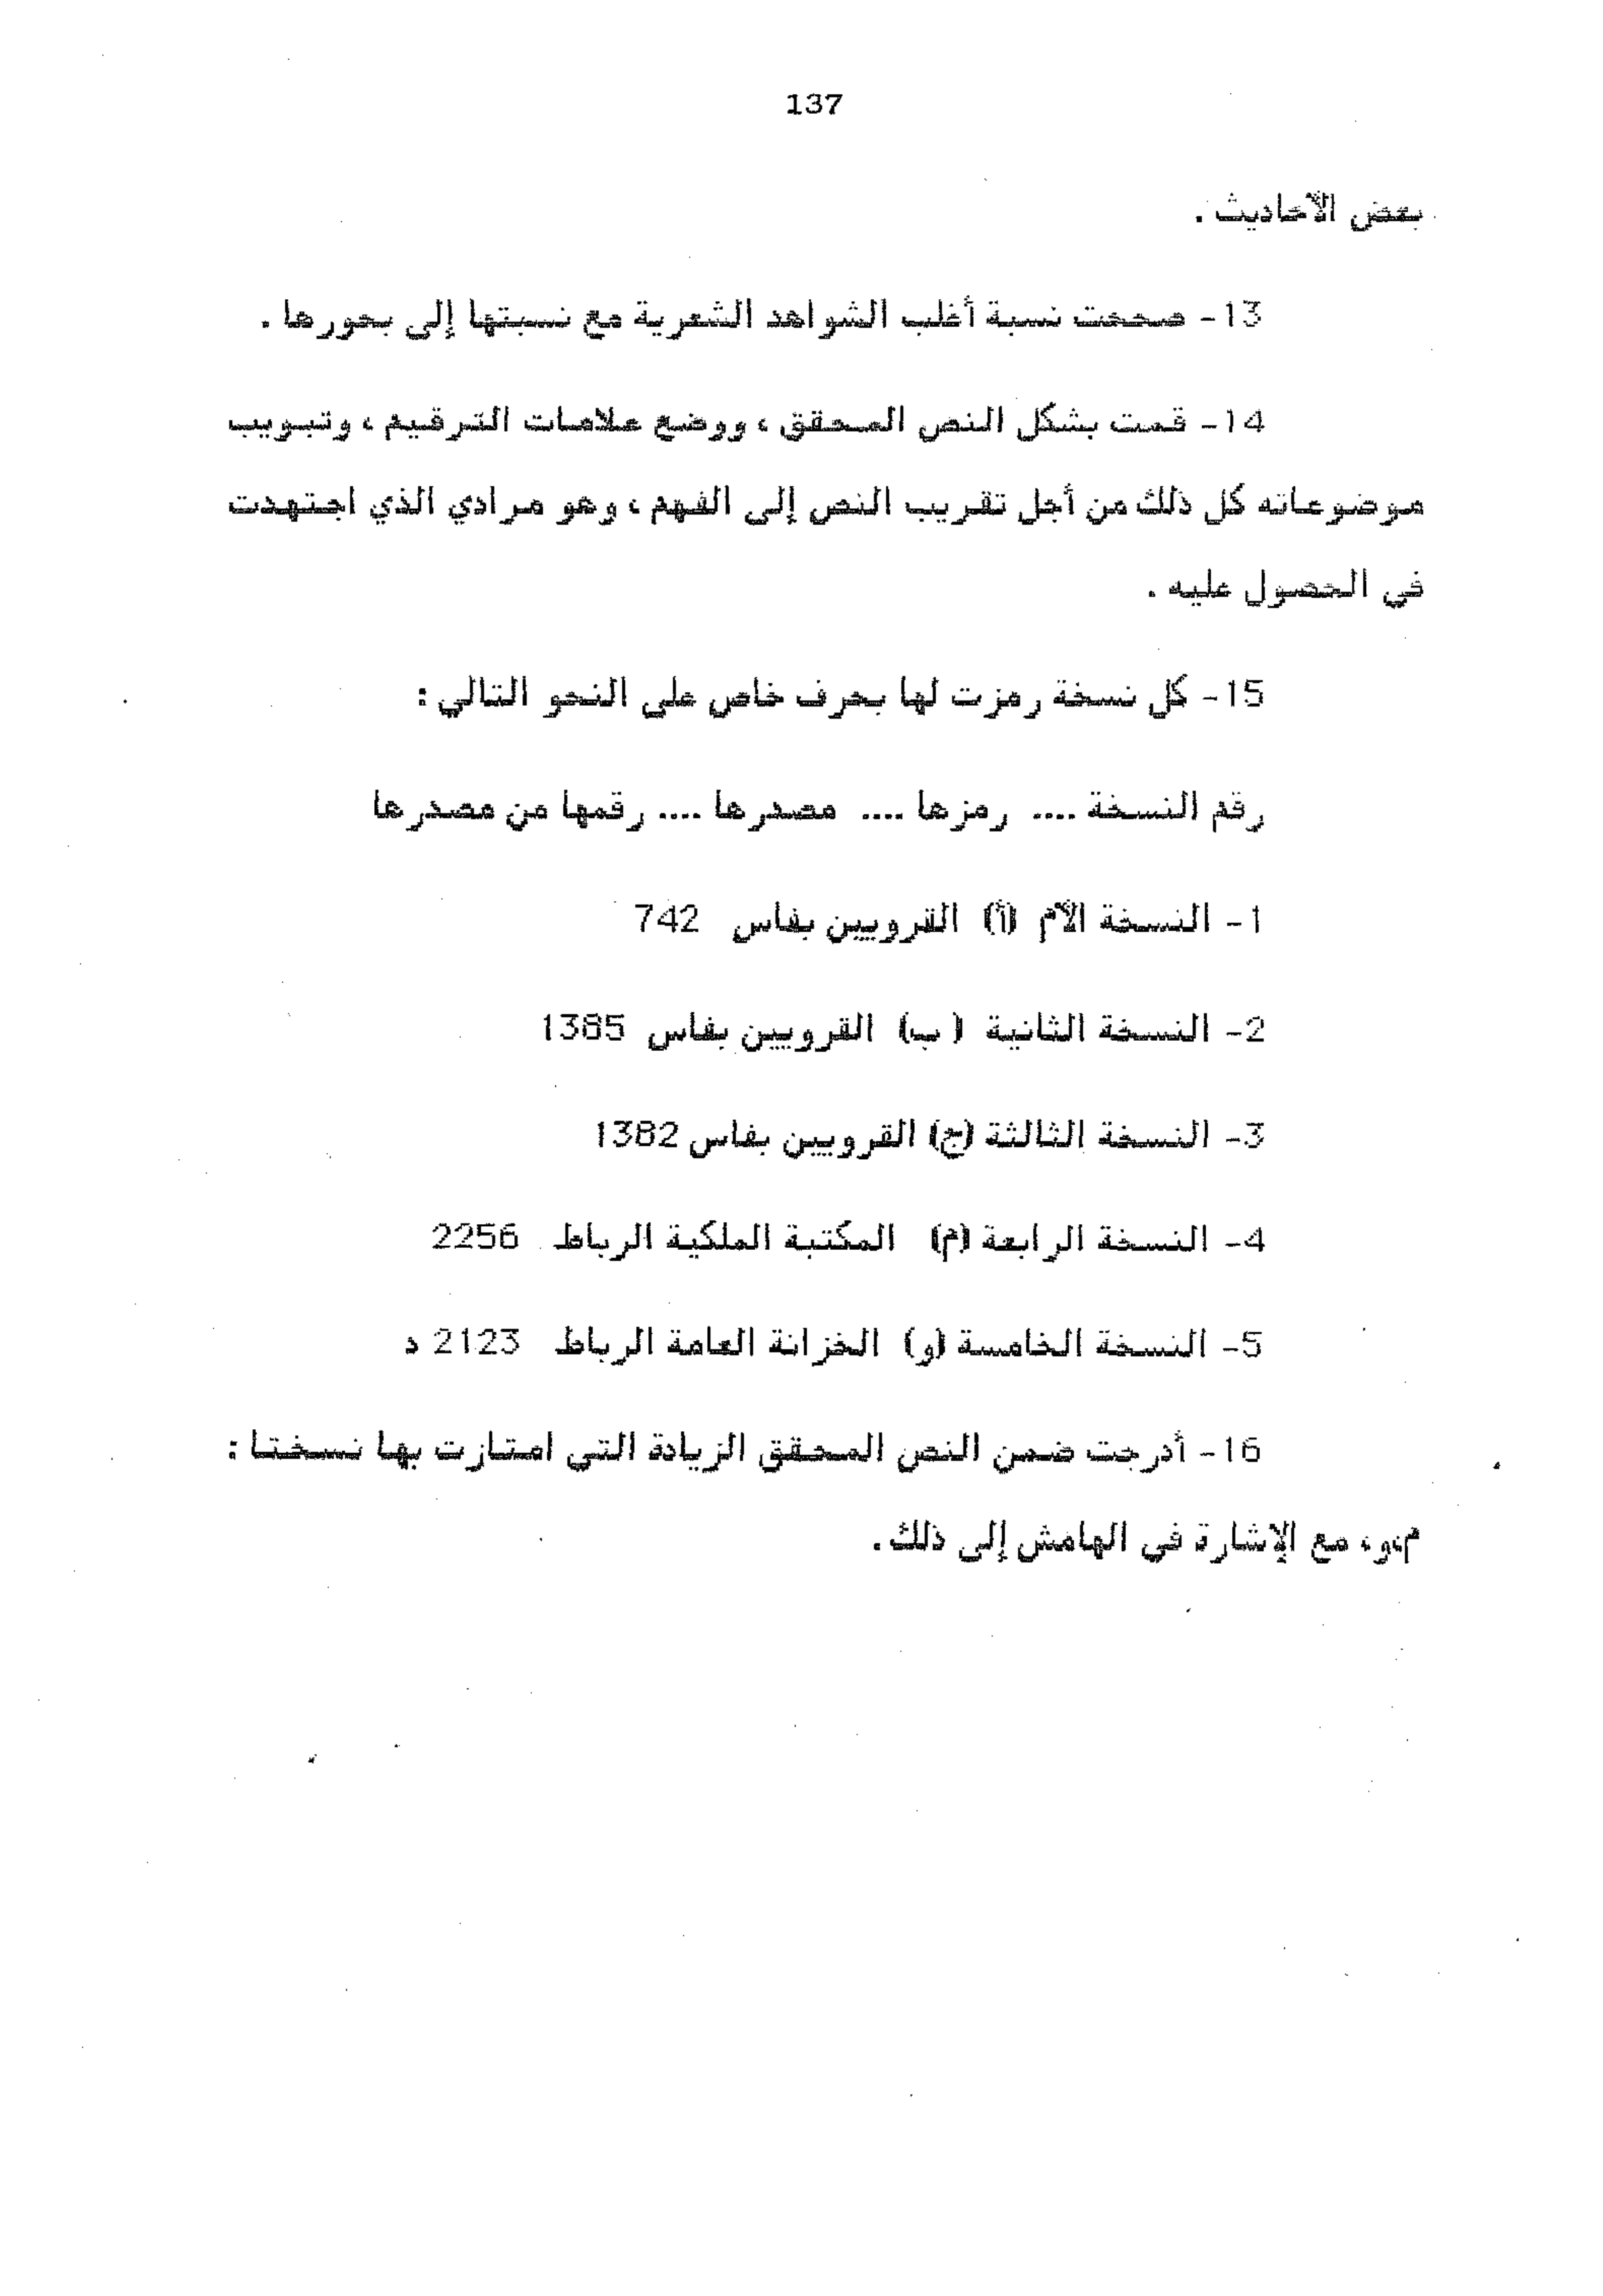 137
بعض الأحاديث .
13- صححت نسبة أغلب الشواهد الشعرية مع نسبتها إلى بحورها .
14- قمت بشكل النص المحقق ، ووضع علامات الترقيم ، وتبويب
موضوعاته كل ذلك من أجل تقريب النص إلى الفهم ، وهو مرادي الذي اجتهدت
في الحصول عليه .
15- كل نسخة رمزت لها بحرف خاص على النحو التالي :
رقم النسخة .... رمزها .... مصدرها .... رقمها من مصدرها
1- النسخة الأم (أ) القرويين بفاس 742
2- النسخة الثانية ( ب) القرويين بفاس 1385
3- النسخة الثالثة (ج) القرويين بفاس 1382
4- النسخة الرابعة (م) المكتبة الملكية الرباط 2256
5- النسخة الخامسة (و) الخزانة العامة الرباط 2123 د
16- أدرجت ضمن النص المحقق الزيادة التي امتازت بها نسختا :
م،و، مع الإشارة في الهامش إلى ذلك.